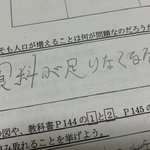 そも人口が増えることは何が問題なのだろう
食料が足りなくなる
図や、教科書P144の1と2、P145の
み取れることを挙げよう。